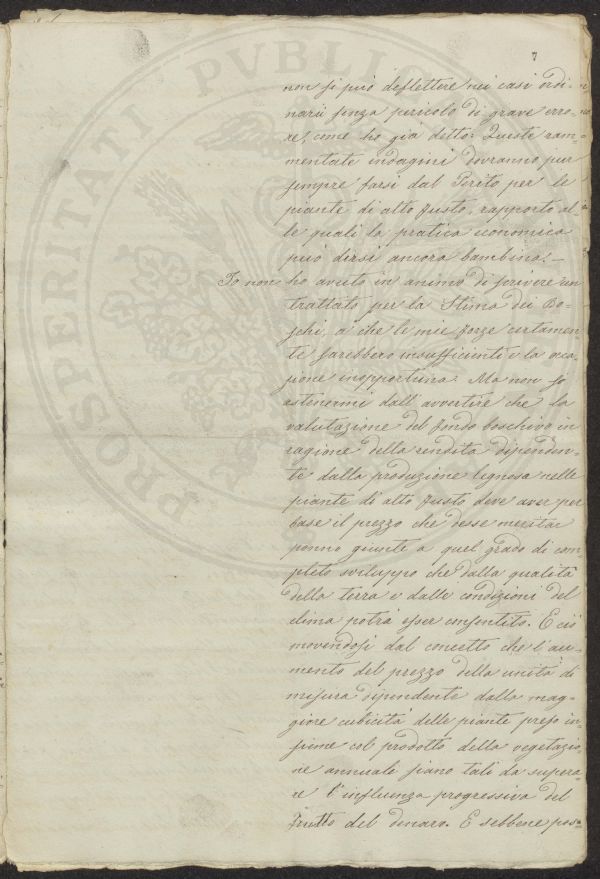 7
non si può deflettere nei casi ordi-
narii senza pericolo di grave erro-
re, come ho già detto: Queste ram-
mentate indagini dovranno pur
sempre farsi dal Perito per le
piante di alto fusto, rapporto al-
le quali la pratica economica
può dirsi ancora bambina.—
Io non ho avuto in animo di scrivere un
trattato per la Stima dei Bo-
schi, a che le mie forze certamen-
te sarebbero insufficienti e la occa-
sione inopportuna. Ma non so
astenermi dall'avvertire che la
valutazione del fondo boschivo in
ragione della rendita dipenden-
te dalla produzione legnosa nelle
piante di alto fusto deve aver per
base il prezzo che desse meritar
ponno giunte a quel grado di com-
pleto sviluppo che dalla qualità
della terra e dalle condizioni del
clima potrà esser consentito. E ciò
movendosi dal concetto che l'au-
mento del prezzo della unità di
misura dipendente dalla mag-
giore cubicità delle piante preso in-
sieme col prodotto della vegetazio-
ne annuale siano tali da supera-
re l'influenza progressiva del
frutto del denaro. E sebbene pos-
PROSPERITATI PVBLIC